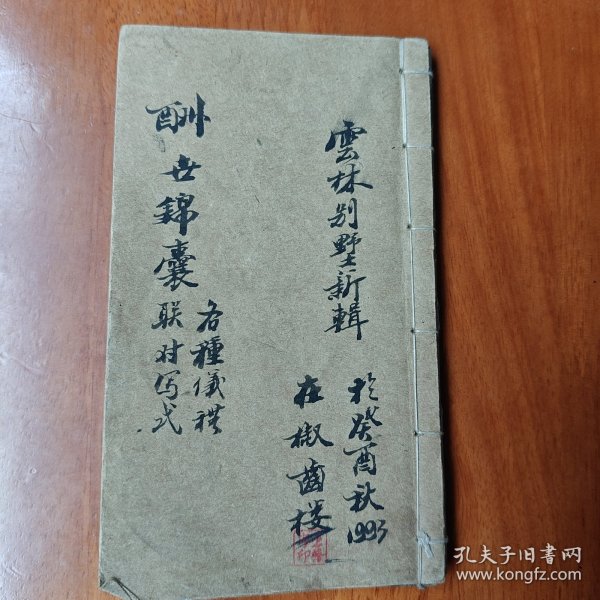 雲林别墅新輯
於癸酉秋1993
在椒齒楼
酬世錦囊
各種儀禮
联对写式
孔夫子旧书网
www.kongfz.com